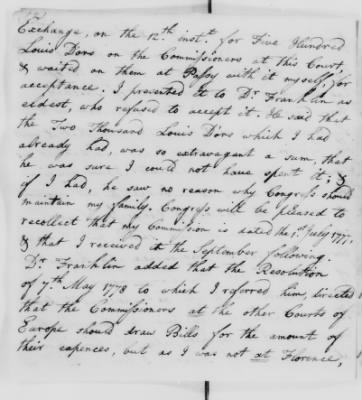 Exchange, on the 12.th inst.t for Five Hundred
Louis Dors on the Commissioners at this Court,
& waited on them at Passy with it myself, for
acceptance. I presented it to Dr Franklin as
eldest, who refused to accept it. He said that
the Two Thousand Louis D'ors which I had
already had, was so extravagant a sum, that
he was sure I could not have spent it; &
if I had, he saw no reason why Congress should
maintain my family. Congress will be pleased to
recollect that my Commission is dated the 1.st July 1777,
& that I received it the September following.
Dr. Franklin added that the Resolution
of 7.th May 1778 to which I referred him, directed
that the Commissioners at the other Courts of
Europe should draw Bills for the amount of
their expences, but as I was not at Florence,